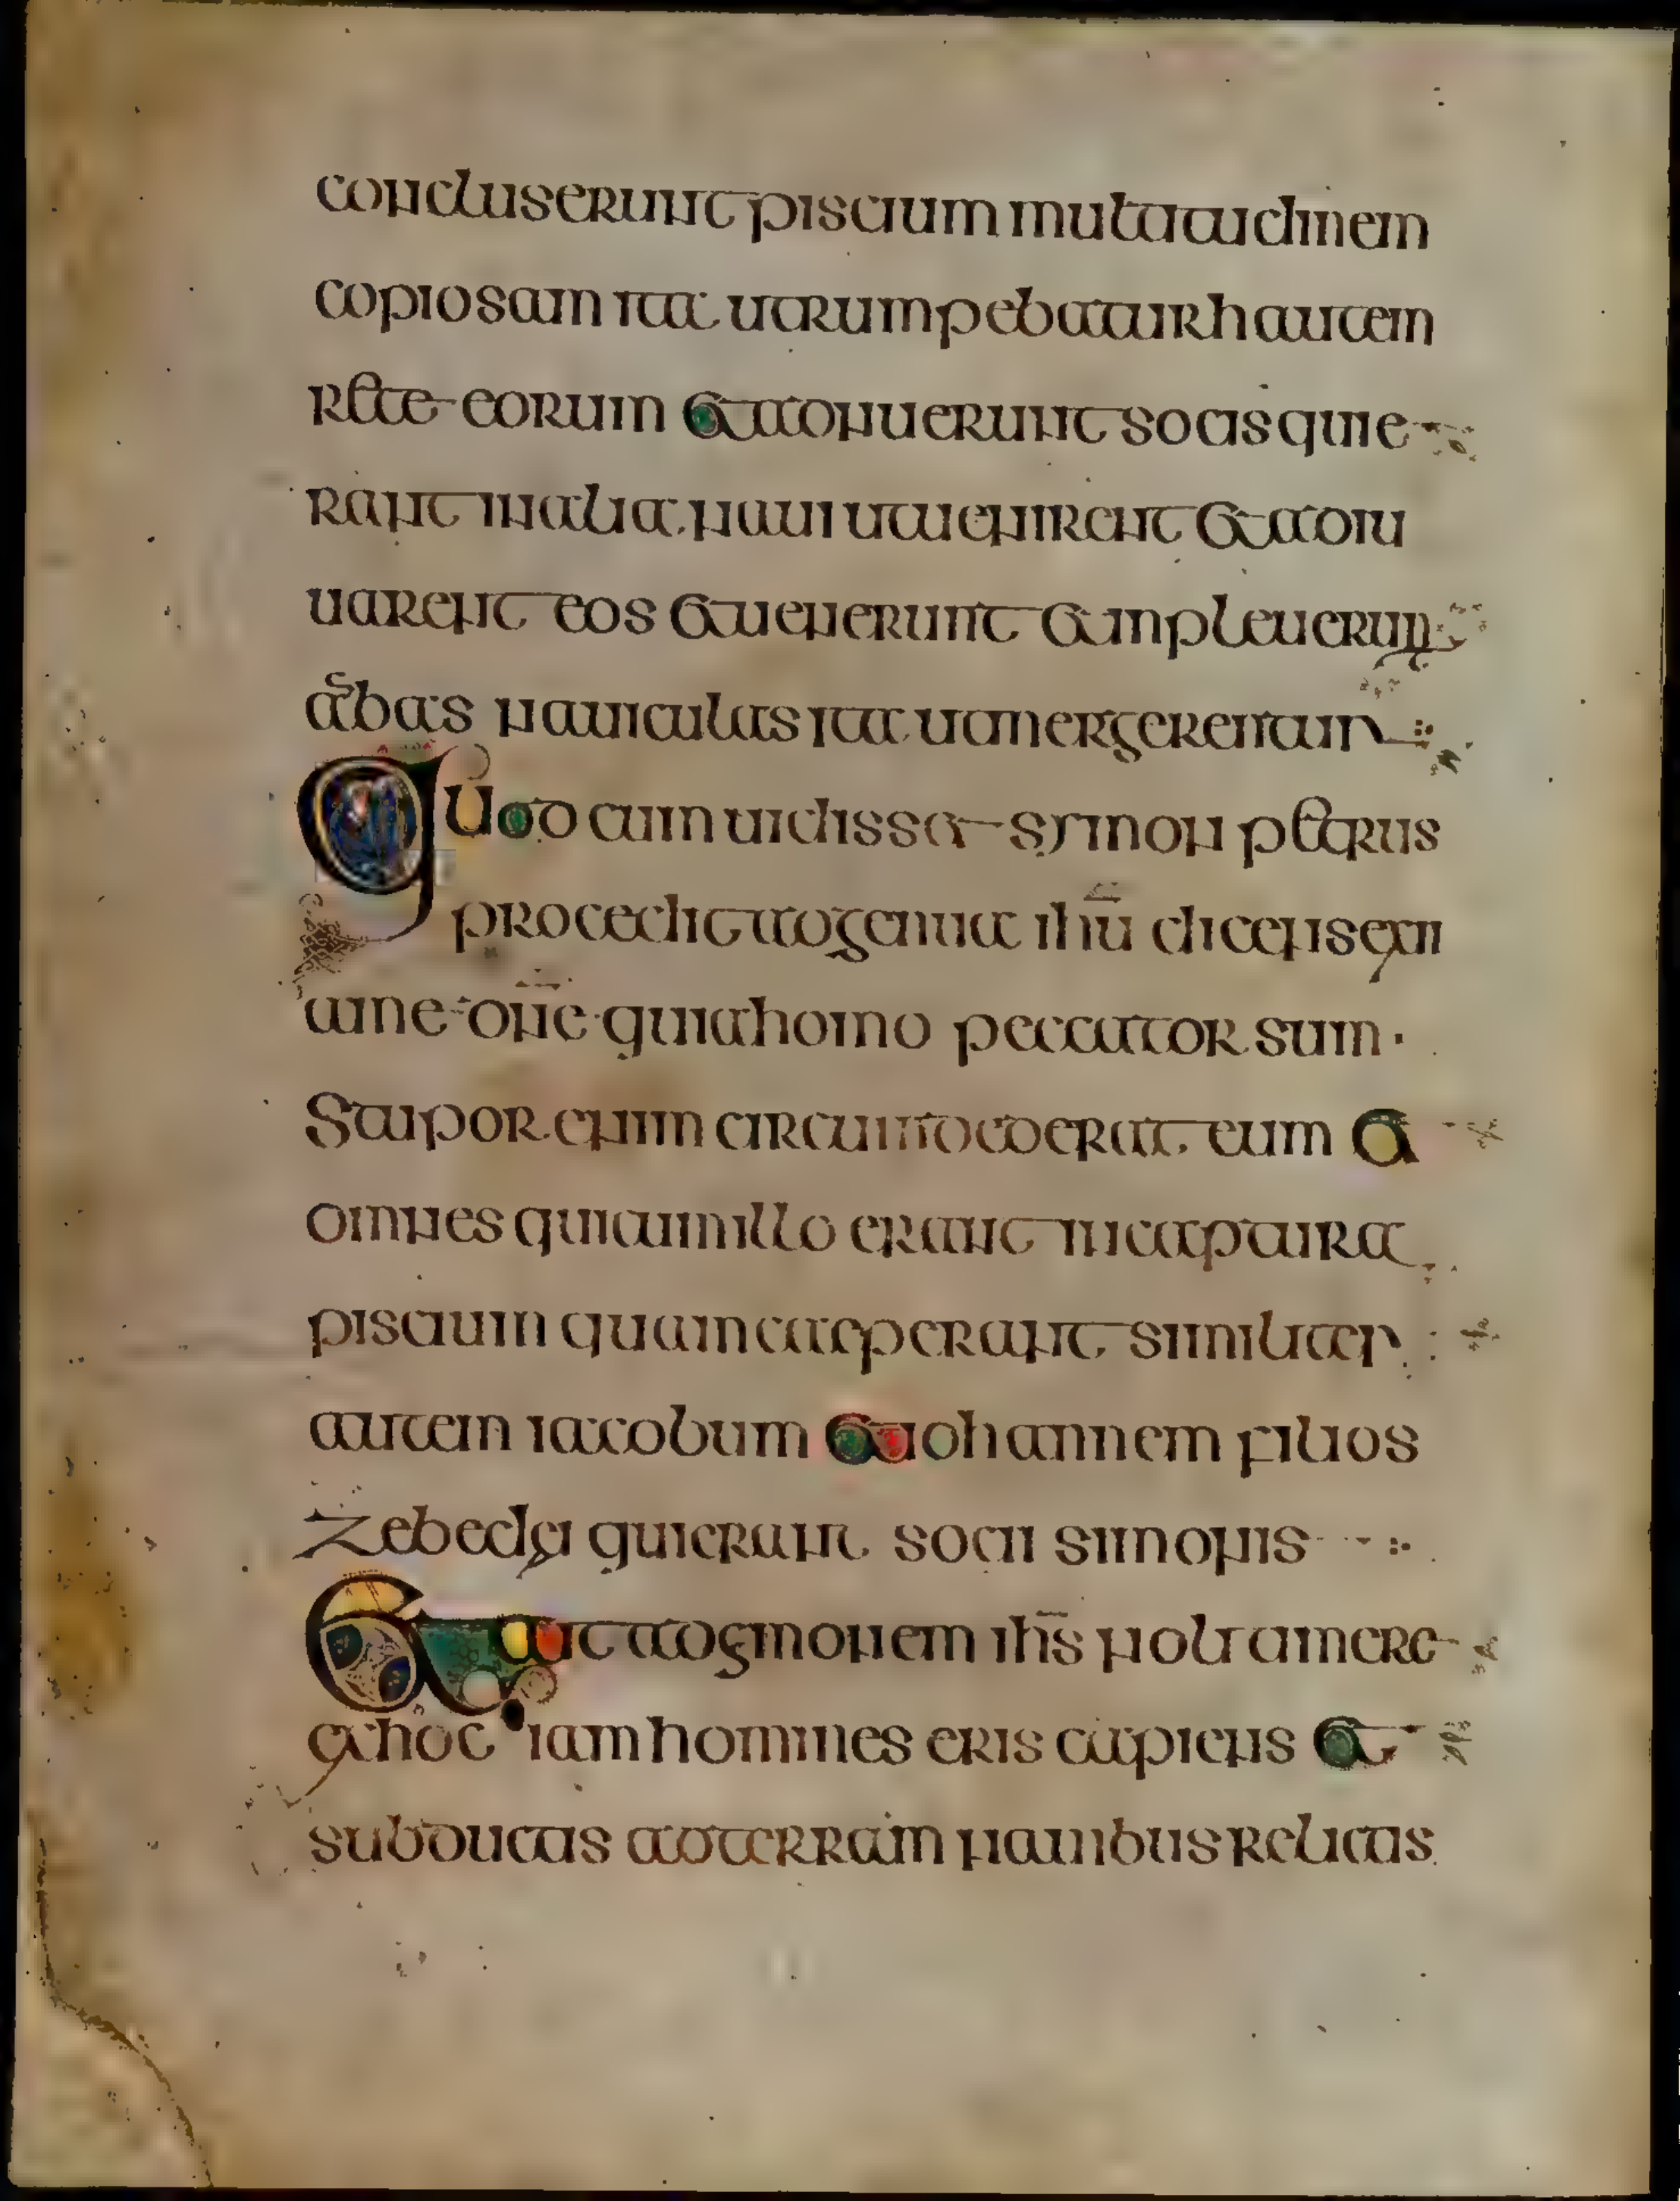 concluserunt piscium multitudinem
copiosam ita ut rumpebatur hautem
rete eorum et adnuerunt socis quie
rant in alia naui ut uenirent et adiu
uarent eos et uenerunt et inpleuerun
ambas nauiculas ita ut mergerentur
Quod cum uidisset symon petrus
procedit ad genua ihū dicens exi
a me dnē quia homo peccator sum ·
Stupor enim circumdederat eum et
omnes qui cum illo erant in captura
piscium quam caeperant similiter
autem iacobum et iohannem filios
zebedei qui erant socii simonis
Et ait ad simonem ihs̄ noli timere
ex hoc iam homines eris capiens et
subductis ad terram nauibus relictis